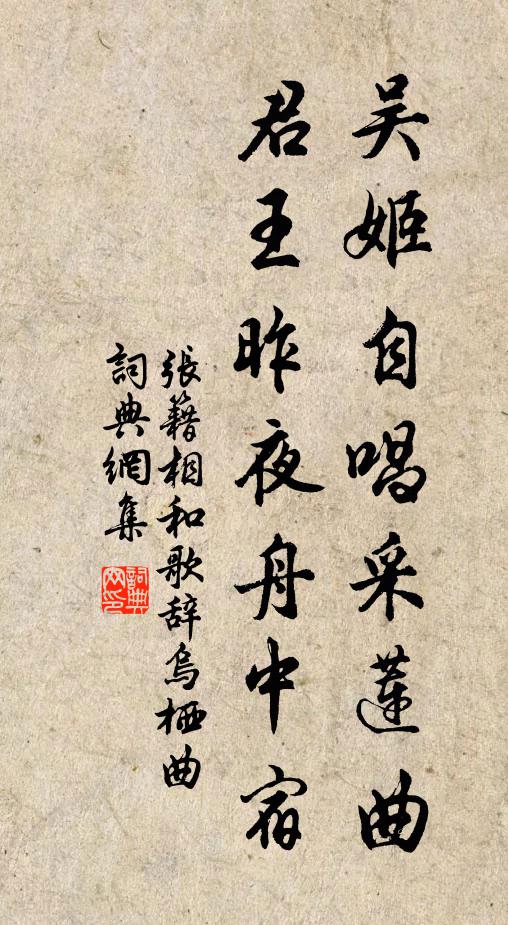 吴姬自唱采蓮曲
君王昨夜舟中宿
張籍相和歌辞烏栖曲
詞典網集
詞典网印